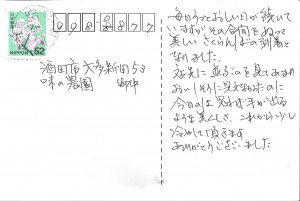 52
NIPPON
酒田市大多新田53
味の農園 御中
毎日うっとおしい日が続いて
いますが その合間をぬって
美しいさくらんぼの到着と
なりました。
店先に並ぶのを見てあまり
おいしそうに見えなかったのに
今日のは思わず手が出る
ような美しさ、これから少し
冷やして頂きます
ありがとうございました